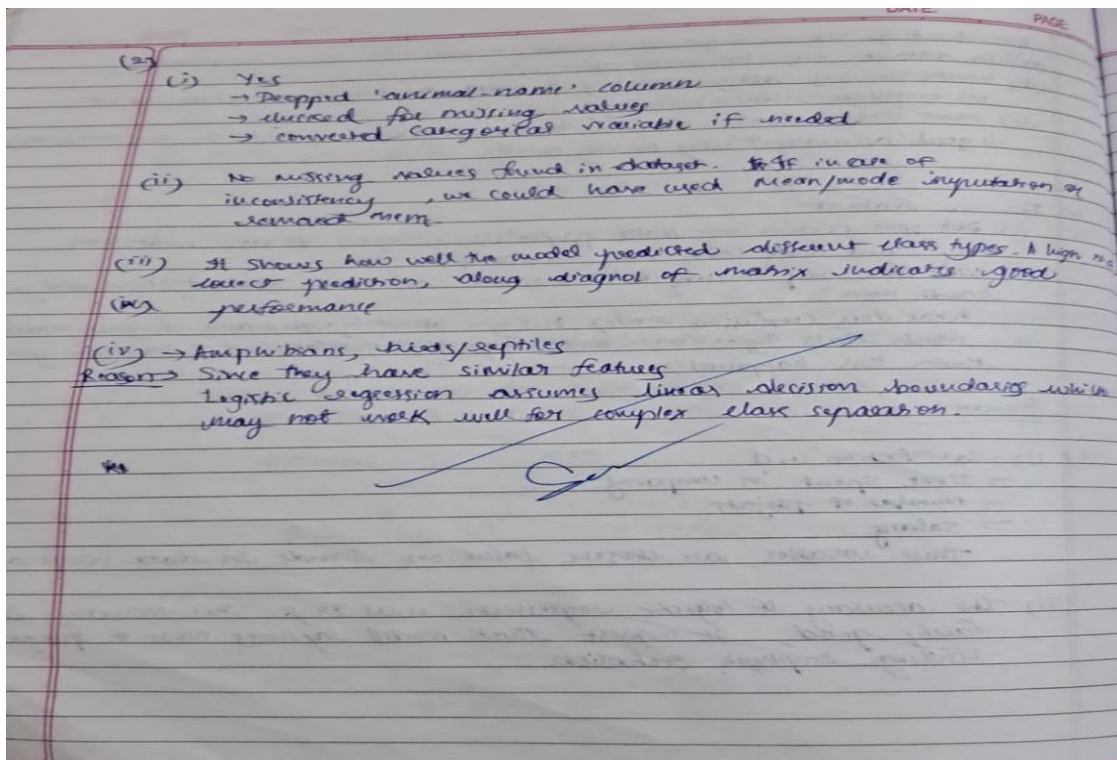 DATE:
PAGE
(2)
(i) Yes
→ Dropped 'animal-name' column
→ checked for missing values
→ converted categorical variable if needed
(ii) No missing values found in dataset. If in case of
inconsistency, we could have used mean/mode imputation or
removed them
(iii) It shows how well the model predicted different class types. A high no.
correct prediction, along diagnol of matrix indicates good
performance
(iv) → Amphibians, birds/reptiles
Reason → Since they have similar features
Logistic regression assumes linear decision boundaries which
may not work well for complex class separation.